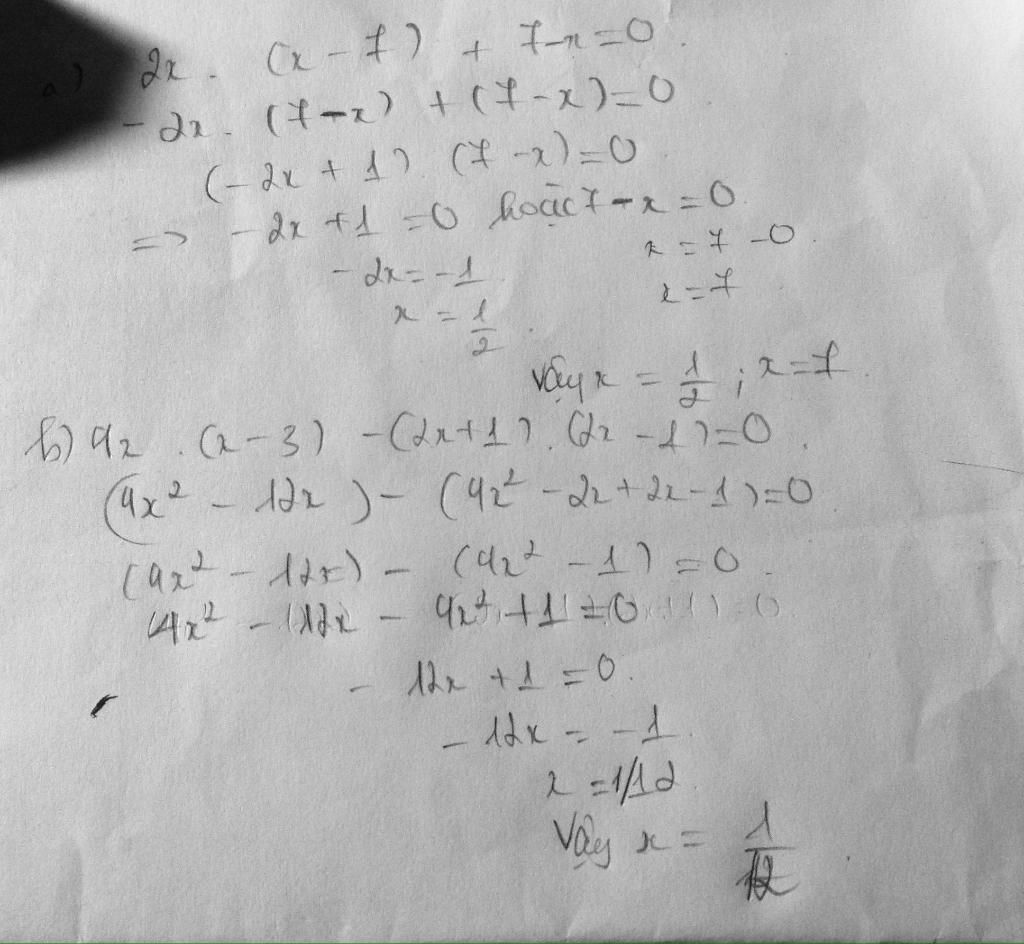 a) 2x . (x - 7) + 7-x=0.
- 2x . (7-x) + (7-x)=0
(-2x + 1) (7-x)=0
=> -2x +1 =0 hoặc 7-x =0.
x = 7 -0.
-2x= -1
x=7
x = 1/2.
Vậy x = 1/2 ; x=7.
b) 4x . (x-3) -(2x+1).(2x -1)=0.
(4x² - 12x) - (4x² -2x+2x-1)=0
(4x² - 12x) - (4x² -1) =0.
4x² - 12x - 4x² +1 =0
- 12x +1 =0.
- 12x = -1.
x =1/12
Vậy x = 1/12.